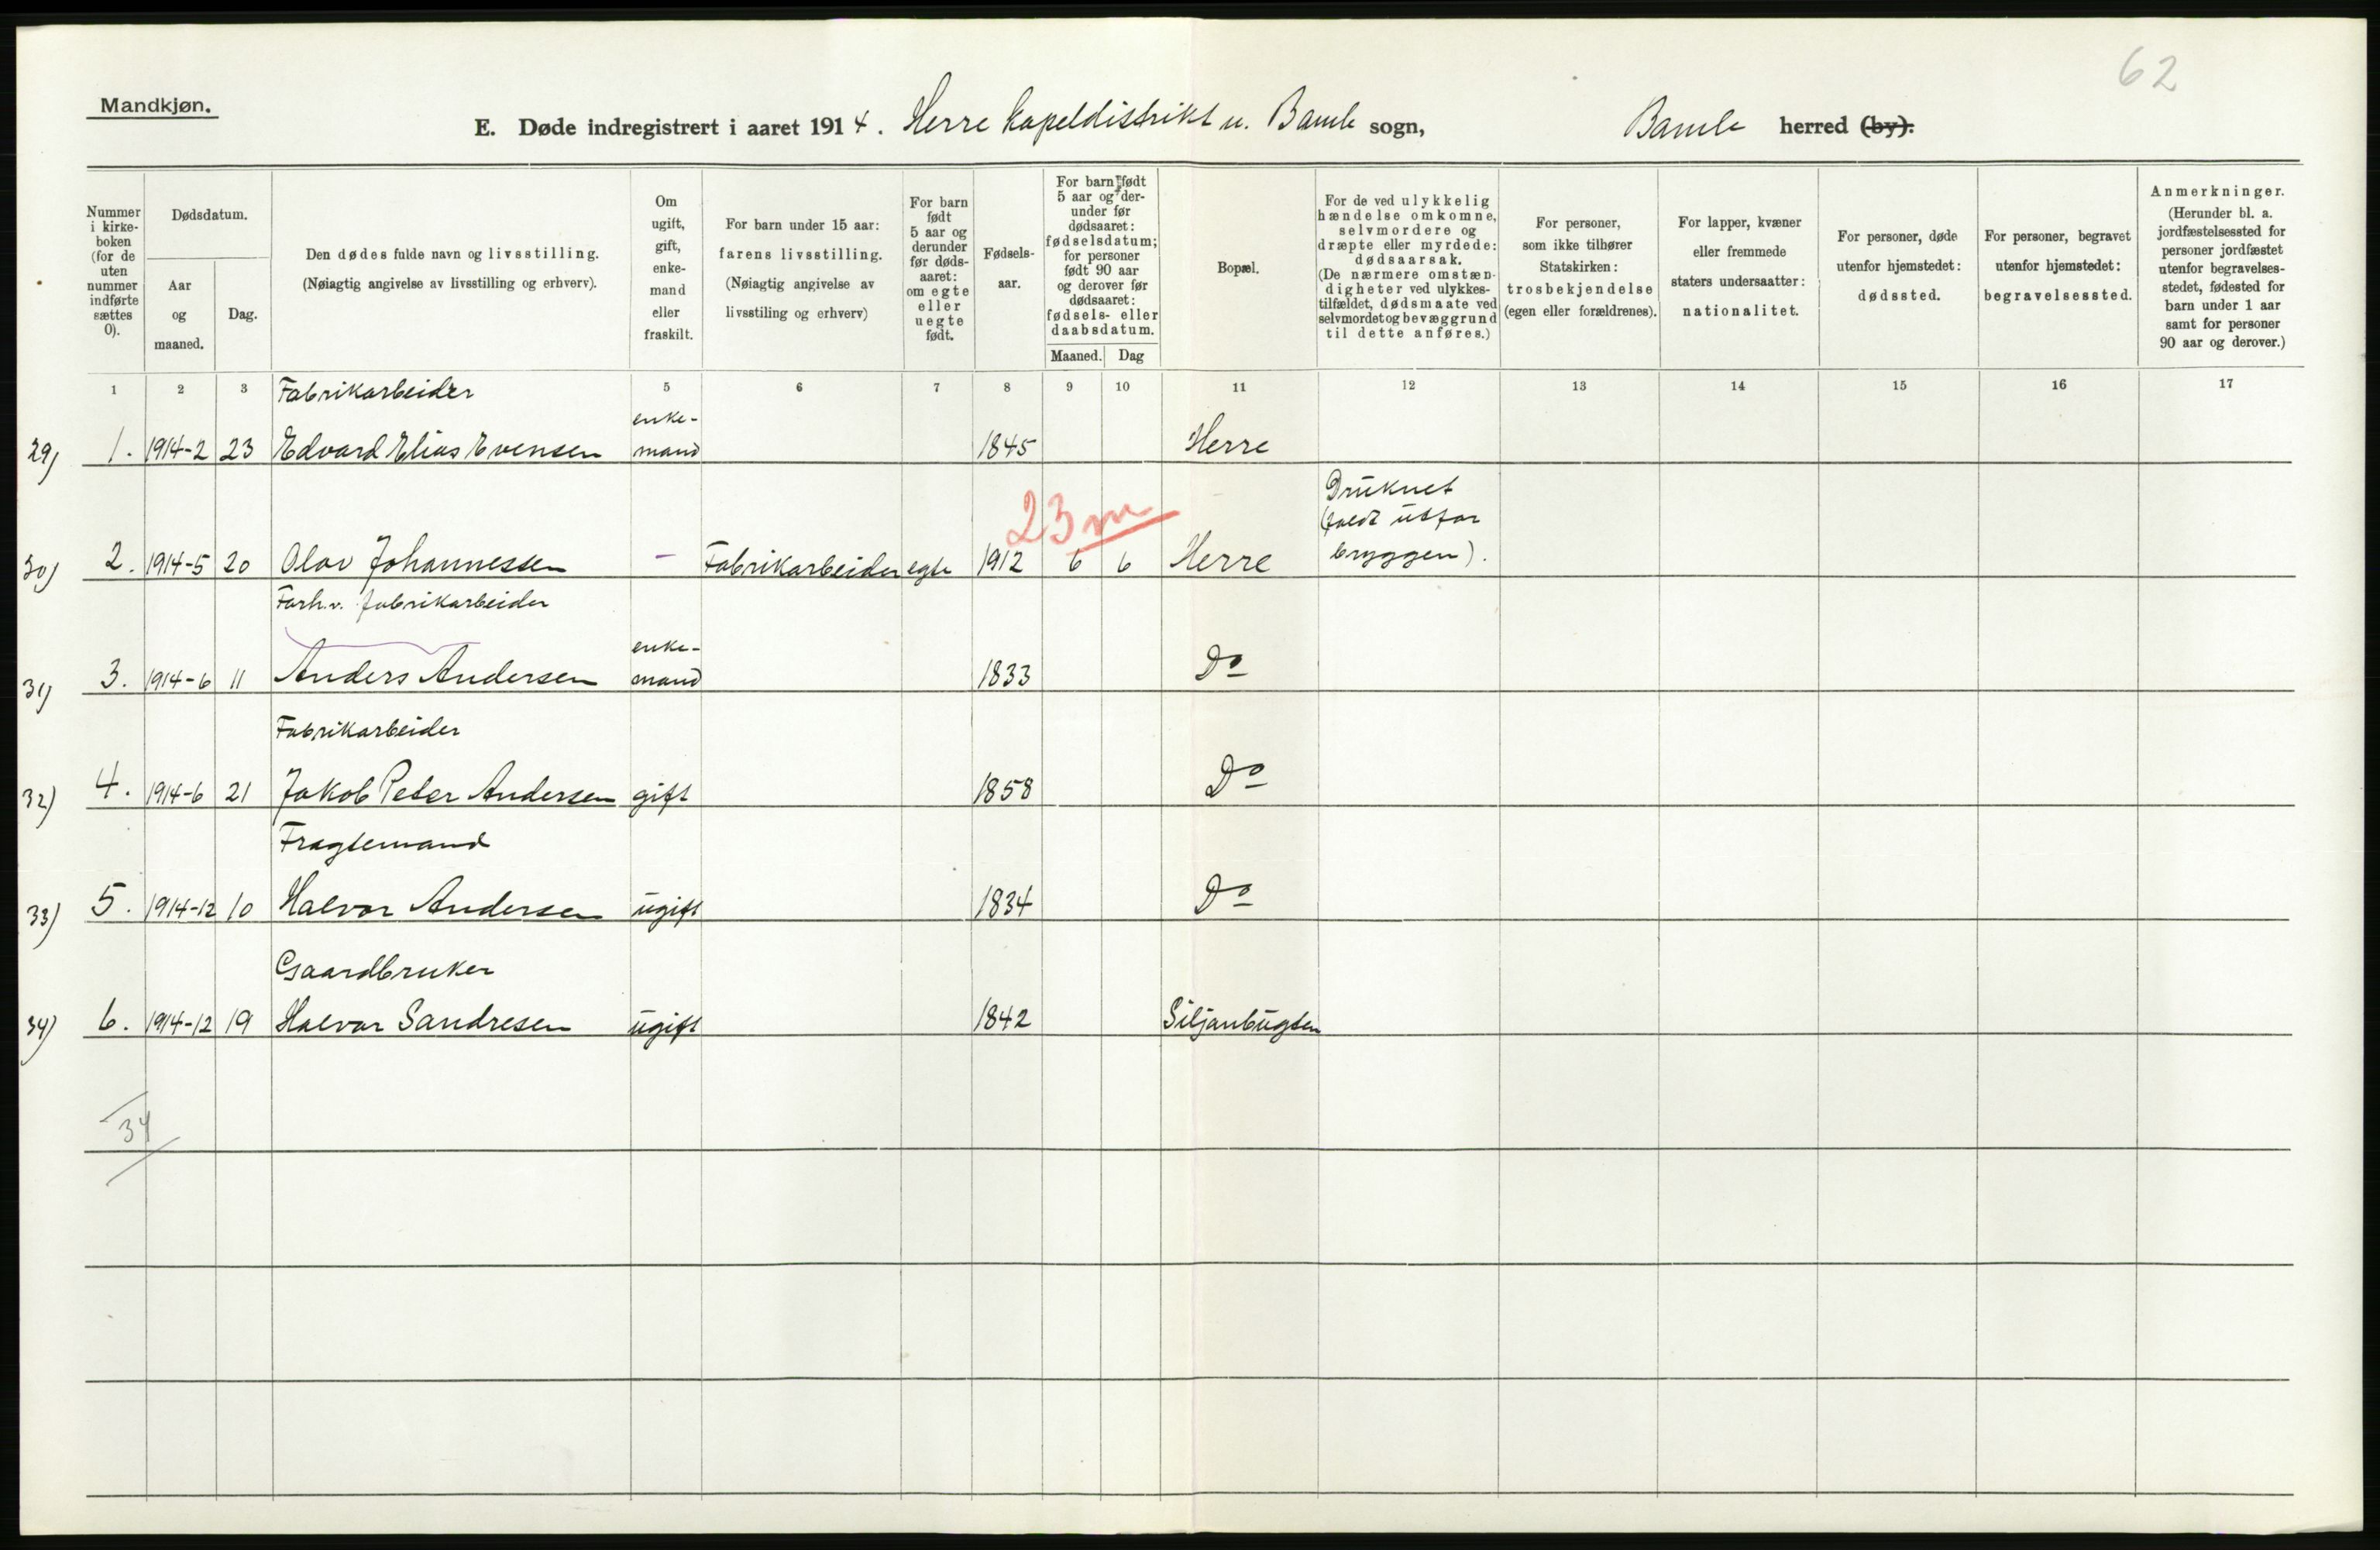 62
Mandkjøn.
E. Døde indregistrert i aaret 1914. Herre kapeldistrikt u. Bamle sogn, Bamle herred (by).
Nummer i kirke-boken (for de uten nummer indførte sættes 0).
Dødsdatum.
Aar og maaned.
Dag.
Den dødes fulde navn og livsstilling.
(Nøiagtig angivelse av livsstilling og erhverv).
Om ugift, gift, enke-mand eller fraskilt.
For barn under 15 aar: farens livsstilling.
(Nøiagtig angivelse av livsstiling og erhverv)
For barn født 5 aar og derunder før døds-aaret: om egte eller uegte født.
Fødsels-aar.
For barn født 5 aar og der-under før dødsaaret: fødselsdatum; for personer født 90 aar og derover før dødsaaret: fødsels- eller daabsdatum.
Maaned. Dag
Bopæl.
For de ved ulykkelig hændelse omkomne, selvmordere og dræpte eller myrdede: dødsaarsak.
(De nærmere omstæn-digheter ved ulykkes-tilfældet, dødsmaate ved selvmordet og bevæggrund til dette anføres.)
For personer, som ikke tilhører Statskirken: trosbekjendelse (egen eller forældrenes).
For lapper, kvæner eller fremmede staters undersaatter: nationalitet.
For personer, døde utenfor hjemstedet: dødssted.
For personer, begravet utenfor hjemstedet: begravelsessted.
Anmerkninger.
(Herunder bl. a. jordfæstelsessted for personer jordfæstet utenfor begravelses-stedet, fødested for barn under 1 aar samt for personer 90 aar og derover.)
1 2 3 5 6 7 8 9 10 11 12 13 14 15 16 17
Fabrikarbeider
enke-
29) 1. 1914-2 23 Edvard Elias Evensen mand 1845 Herre
Druknet
23 m (faldt utfor
30) 2. 1914-5 20 Olav Johannessen - Fabrikarbeider egte 1912 6 6 Herre bryggen).
Forh.v. fabrikarbeider
enke-
31) 3. 1914-6 11 Anders Andersen mand 1833 Do
Fabrikarbeider
32) 4. 1914-6 21 Jakob Peter Andersen gift 1858 Do
Fragtemand
33) 5. 1914-12 10 Halvor Andersen ugift 1834 Do
Gaardbruker
34) 6. 1914-12 19 Halvor Sandresen ugift 1842 Siljanbugten
34